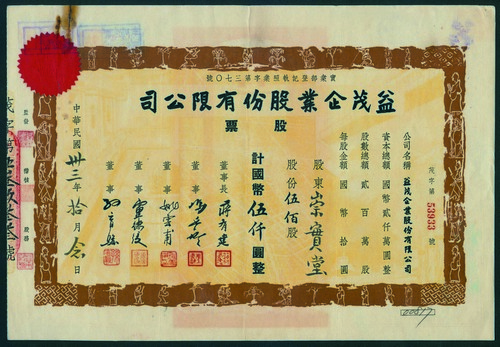 實業部登記執照業字第三七〇號
益茂企業股份有限公司
股票
茂字第 53933 號
公司名稱 益茂企業股份有限公司
資本總額 國幣貳仟萬圓整
股數總額 貳百萬股
每股金額 國幣拾圓
股東 崇實堂
股份伍佰股
計國幣伍仟圓整
董事長
董事
董事
董事
董事
中華民國卅三年拾月念日
00877